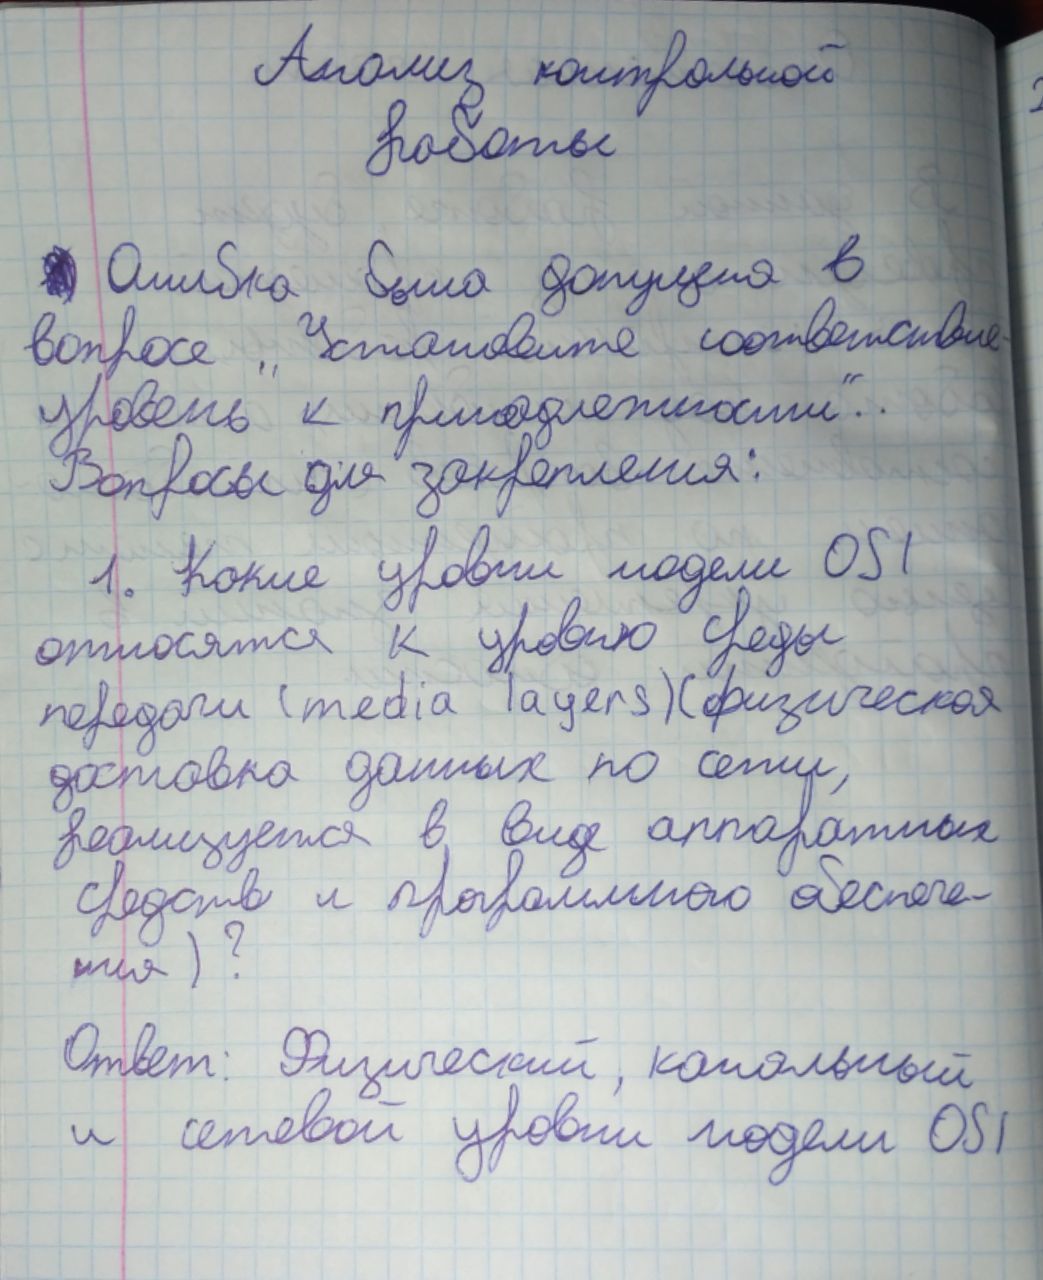 Анализ контрольной
работы
Ошибка была допущена в
вопросе „Установите соответствие-
уровень к принадлежности“..
Вопросы для закрепления:
1. Какие уровни модели OSI
относятся к уровню среды
передачи (media layers)(физическая
доставка данных по сети,
реализуется в виде аппаратных
средств и программного обеспече-
ния)?
Ответ: Физический, канальный
и сетевой уровни модели OSI